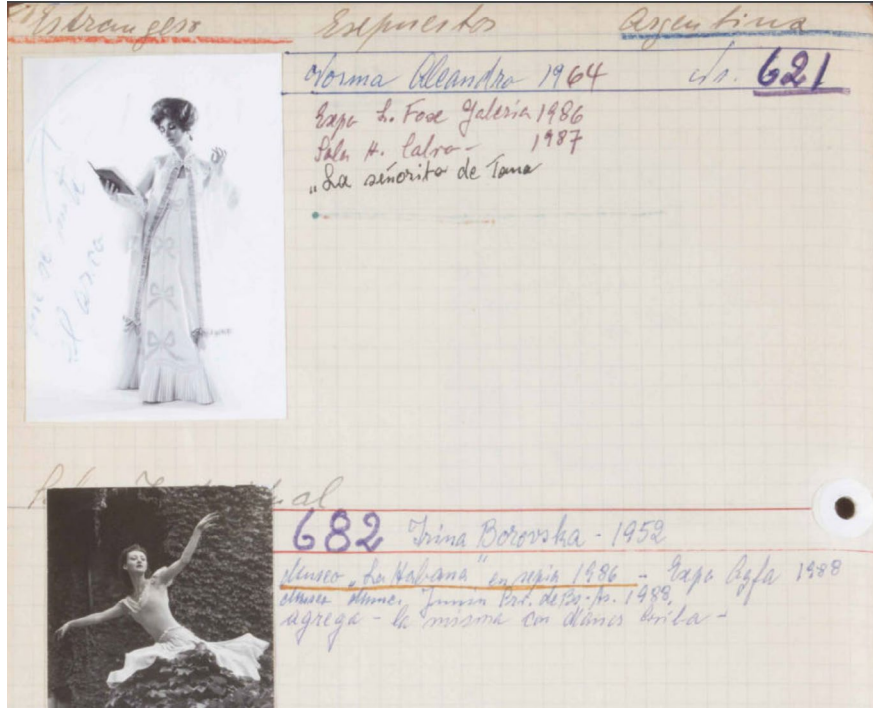 Estrangero Expuestos Argentina
Norma Aleandro 1964 No. 621
Expo L. Foxe Galeria 1986
Sala H. Calvo - 1987
"La señorita de Tacna
que se mete
el aura
682 Irina Borovska - 1952
Museo "La Habana" en sepia 1986 - Expo Agfa 1988
Museo Munic. Junin Pri. de Bs. As. 1988
agrega - la misma con manos arriba -